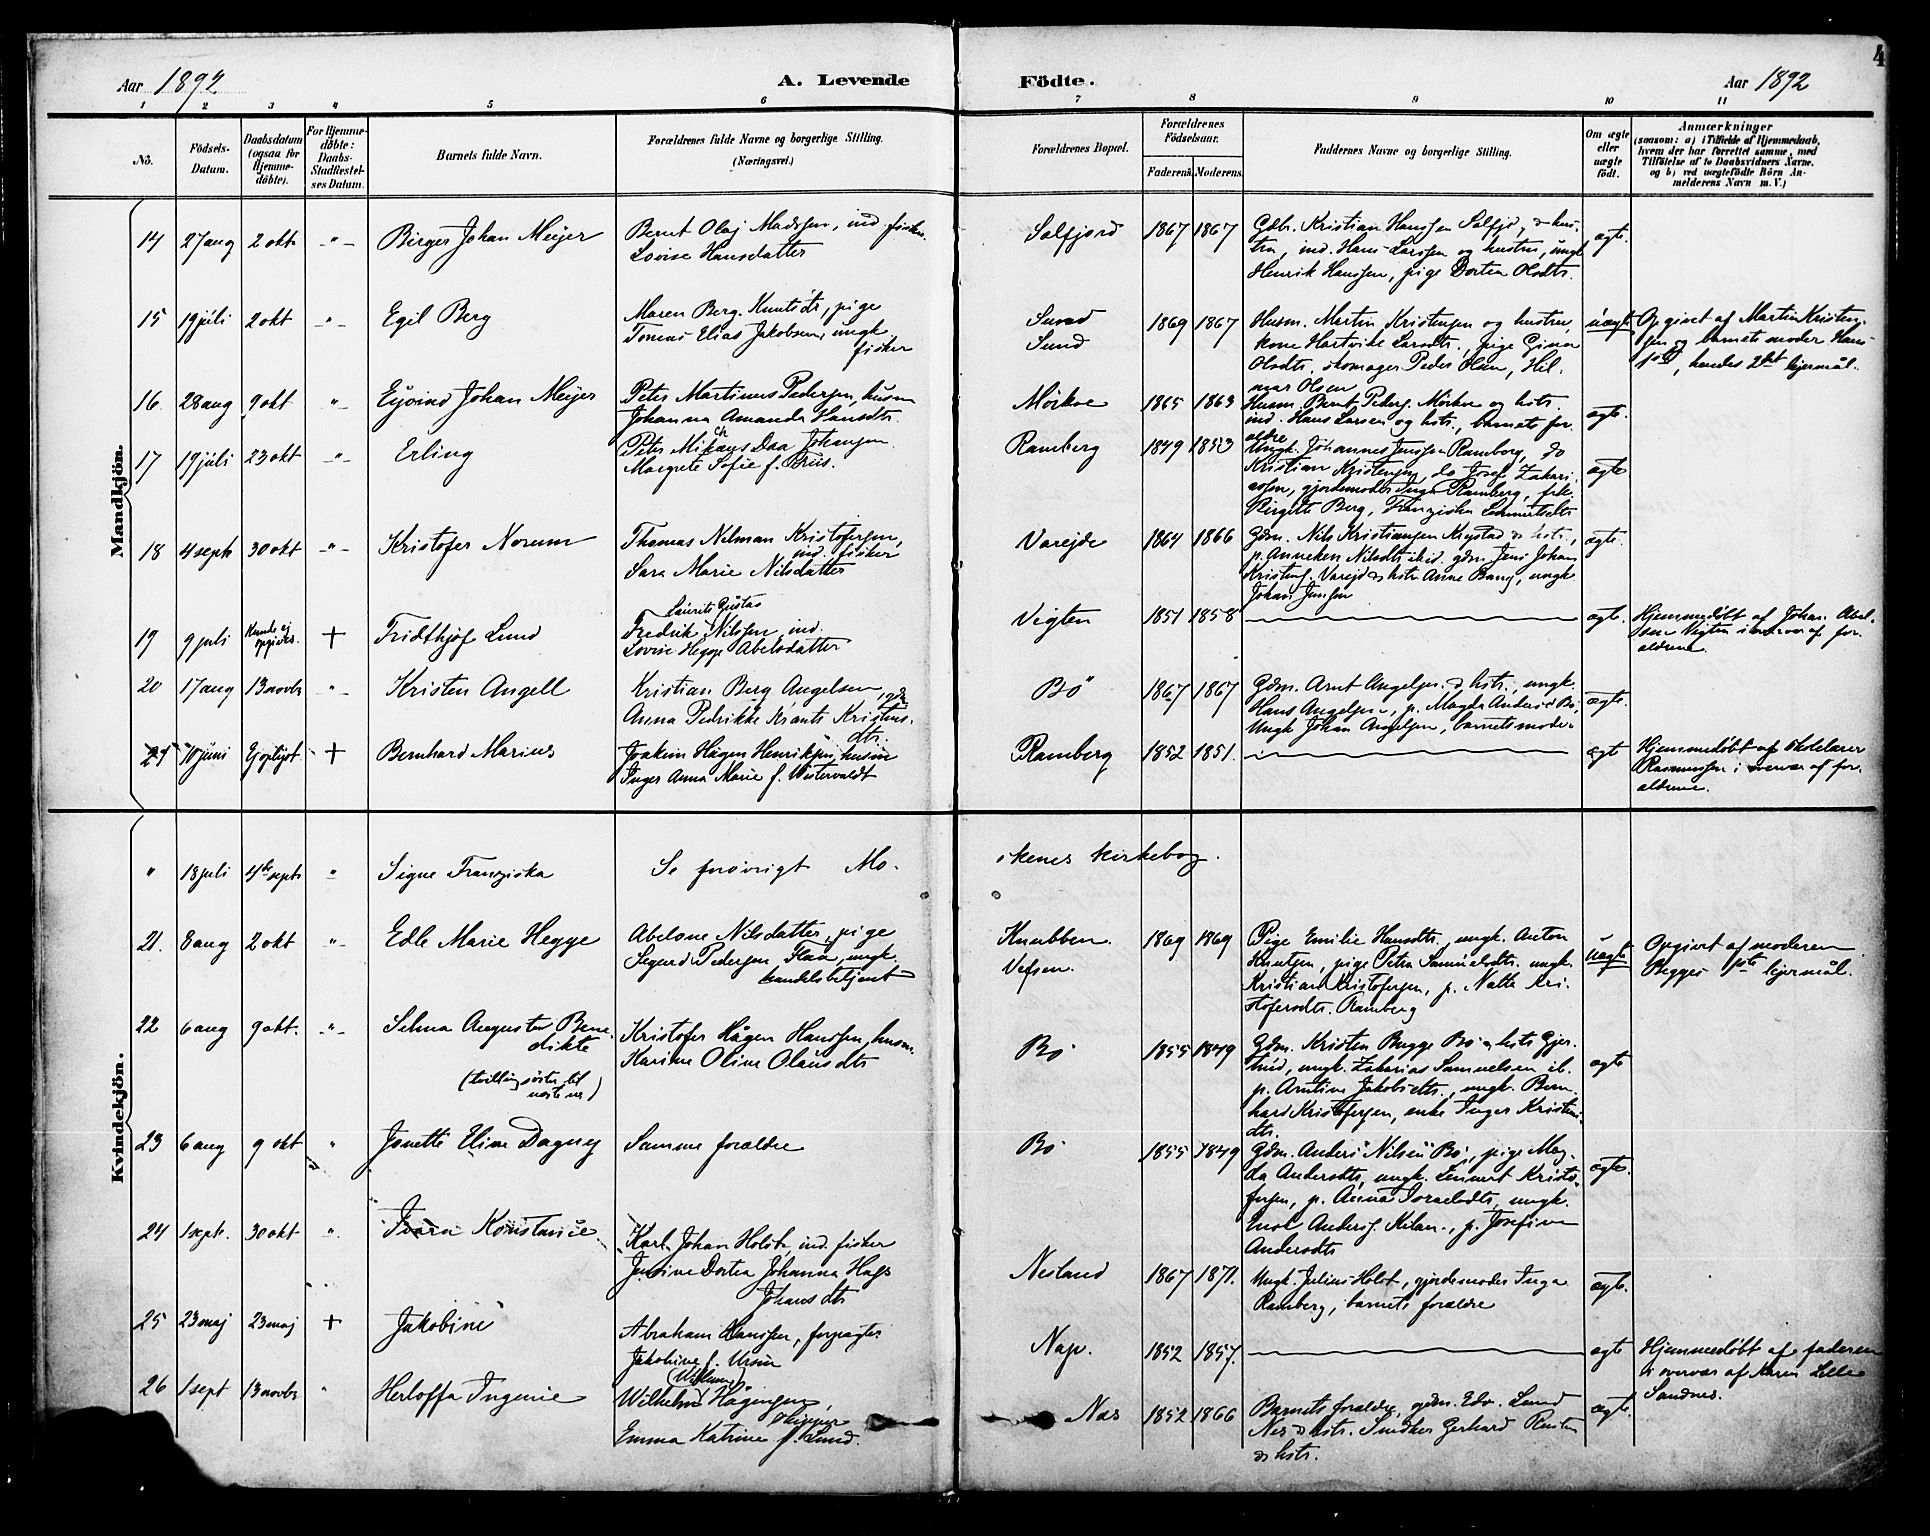 4
Aar 1892
A. Levende
Födte.
Aar 1892
1 2 3 4 5 6 7 8 9 10 11
No.
Födsels-Datum.
Daabsdatum (ogsaa for Hjemme-döbte).
For Hjemme-döbte: Daabs-Stadfæstel-ses Datum.
Barnets fulde Navn.
Forældrenes fulde Navne og borgerlige Stilling. (Næringsvei.)
Forældrenes Bopæl.
Forældrenes Födselsaar.
Faderens. Moderens.
Faddernes Navne og borgerlige Stilling.
Om ægte eller uægte födt.
Anmærkninger
(saasom: a) i Tilfælde af Hjemmedaab,
hvem der har forrettet samme, med
Tilföielse af to Daabsvidners Navne,
og b) ved uægtefödte Börn An-
melderens Navn m. V.)
Mandkjön.
14 27 aug 2 okt -"- Birger Johan Meijer
Bernt Olaj Madssen, ind. fisker
Lovise Hansdatter
Solfjord 1867 1867
Gdbr. Kristian Hanssen Solfjd, & hus-
tru, ind. Hans Larssen og hustru, ungk
Henrik Hanssen, pige Dortea Olsdtr.
ægte.
15 19 juli 2 okt -"- Egil Berg
Maren Berg Knutsdtr, pige
Tomas Elias Jakobsen, ungk.
fisker
Sund
Sund
1869 1867
Husm. Martin Kristensen og hustru,
kone Hartvike Larsdtr., pige Gina
Olsdtr. skomager Peder Olsen, Hil-
mar Olsen
uægte
Opgivet af Martin Kristen-
sen og barnets moder. Hans
1ste, hendes 2det lejermål.
16 28 aug 9 okt " Ejvind Johan Meijer
Peter Martinus Pedersen, husm
Johanna Amanda Hansdtr.
Mörkve 1865 1863
Husm Bernt Peders. Mörkve og hstr.
ind. Hans Larsen og hstr., barnets for-
ældre
ægte.
17 19 juli 23 okt " Erling
Peter Mikael Daa Johansen
Margrete Sofie f. Friis.
Ramberg 1849 1853
Ungk. Johannes Jenssen Ramberg, do
Kristian Kristensen, do Josef Zakari-
assen, gjordemoder Inga Ramberg, frk.
Birgitte Berg, Franziska Lennertsdtr
ægte
18 4 sept 30 okt -"- Kristofer Norum
Thomas Nilman Kristofersen,
ind. fisker
Sara Marie Nilsdatter
Varejde 1864 1866
Gdm. Nils Kristiansen Krystad & hstr.,
p. Anneken Nilsdtr ibid. gdm Jens Johan
Kristens. Varejd & hstr Anne Bang, ungk
Johan Jenssen
ægte.
19 9 juli Kunde ej opgives + Fridthjof Lund
Laurits Gustav
Fredrik Nilssen, ind.
Lovise Hegge Abelsdatter
Vigten 1851 1858
ægte.
Hjemmedöbt af Johan Abel-
sen Vigten i overvær af for-
ældrene
20 17 aug 13 novbr " Kristen Angell
Kristian Berg Angelsen, gdm
Anna Pedrikke Krants Kristens-
dtr.
Bö 1867 1867
Gdm. Arnt Angelsen & hstr., ungk.
Hans Angelsen, p. Magda Andersd Bö,
Ungk Johan Angelsen, barnets moder
ægte.
21 10 juni Ej oplyst + Bernhard Marius
Joakim Hagen Henriksen, husm
Inger Anna Marie f. Wistervaldt
Ramberg 1852 1851.
ægte
Hjemmedöbt af skolelærer
Rasmussen i overvær af for-
ældrene.
Kvindekjön.
" 18 juli 4de sept " Signe Franziska
Se forövrigt Mo-
skenes kirkebog.
21. 8 aug 2 okt -"- Edle Marie Hegge
Abelone Nilsdatter, pige
Sigurd Pedersen Flaa, ungk.
handelsbetjent
Knubben.
Vefsen.
1869 1869
Pige Emilie Hansdtr., ungk. Anton
Knutsen, pige Petra Samuelsdtr. ungk.
Kristian Kristofersen, p. Nalle Kri-
stofersdtr. Ramberg
uægte
Opgivet af moderen
Begges 1ste lejermål.
22 6 aug 9 okt. -"- Selma Augusta Bene-
dikte
(tvillingsöster til
næste nr)
Kristofer Hågen Hanssen, husm.
Karine Oline Olausdtr
Bö 1855 1849
Gdm. Kristen Bugge Bö & hstr Gjer-
trud, ungk. Zakarias Samuelsen ib.
p. Arntine Jakobsdtr., ungk. Bern-
hard Kristofersen, enke Inger Kristens-
dtr.
ægte
23 6 aug 9 okt " Jonette Eline Dagny
Samme forældre
Bö 1855 1849
Gdm. Anders Nilsen Bö, pige Mag-
da Andersdtr, ungk. Lennert Kristo-
fersen, p. Anna Israelsdtr, ungk.
Enok Anders. Kilan., p. Josefine
Andersdtr
ægte.
24 1 sept. 30 okt " Ivara Konstance
Karl Johan Holst, ind. fisker
Jensine Dortea Johanna Hass
Johansdtr
Nesland 1867 1871.
Ungk. Julius Holst, gjordemoder Inga
Ramberg, barnets forældre
ægte.
25 23 maj 23 maj + Jakobine
Abraham Hanssen, forpagter
Jakobine f. Ursin
Nap. 1852 1857.
ægte
Hjemmedöbt af faderen
i overvær af Karen Lille
Sandnes.
26 1 sept 13 novbr " Herloffa Ingenie
Wilhelm Hågensen,
skipper
Emma Katrine f. Lund.
Næs 1852 1866
Barnets forældre, gdm. Edv. Lund
Næs & hstr. Snedker Gerhard
& hstr.
ægte.